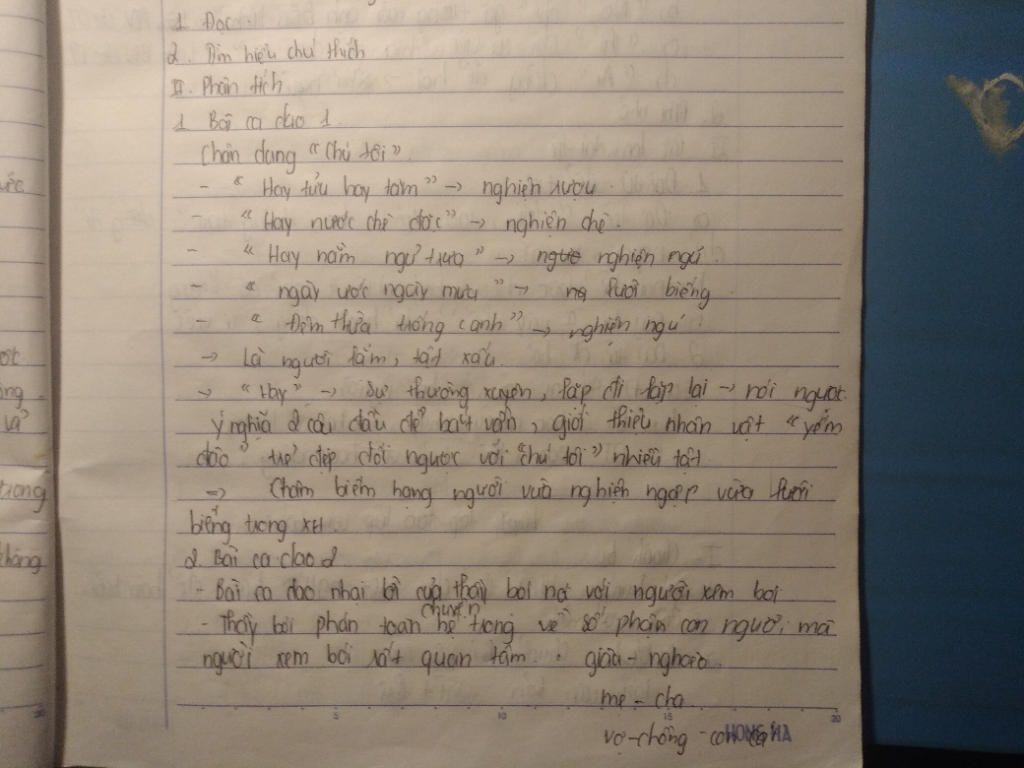 1 Đọc.
2. Tìm hiệu chú thích
II. Phân tích
1 Bài ca dao 1
Chân dang "Chú tôi"
- " Hay tửu hay tăm " → nghiện rượu.
- " Hay nước chè đặc" → nghiện chè.
ước
- " Hay nằm ngủ trưa " → nghiện ngủ
- " ngày ước ngày mưa " → lười biếng
- " Đêm thừa trống canh" → nghiện ngủ
→ Là người lắm, tật xấu.
→ "Hay" → sự thường xuyên, lặp đi lặp lại → nói ngược
ý nghĩa 2 câu đầu để bắt vần, giới thiệu nhân vật "yếm
và
đào" trẻ đẹp đối ngược với "chú tôi" nhiều tật
⇒ Châm biếm hạng người vừa nghiện ngập vừa lười
trong
biếng trong XH
2. Bài ca dao 2
không
- Bài ca dao nhại lời của thầy bói nợ với người xem bói
chuyện
- Thầy bói phán toàn hệ trọng về số phận con người, mà
người xem bói rất quan tâm. . giàu - nghèo.
mẹ - cha
5 10 15 20
vợ - chồng - con cái
HONG HA